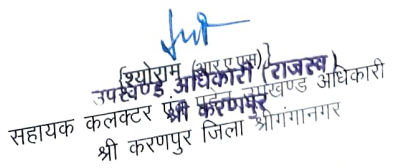 {श्योराम (आर.ए.एस)}
उपखण्ड अधिकारी (राजस्व)
श्री करणपुर
सहायक कलक्टर एवं पदेन उपखण्ड अधिकारी
श्री करणपुर जिला श्रीगंगानगर